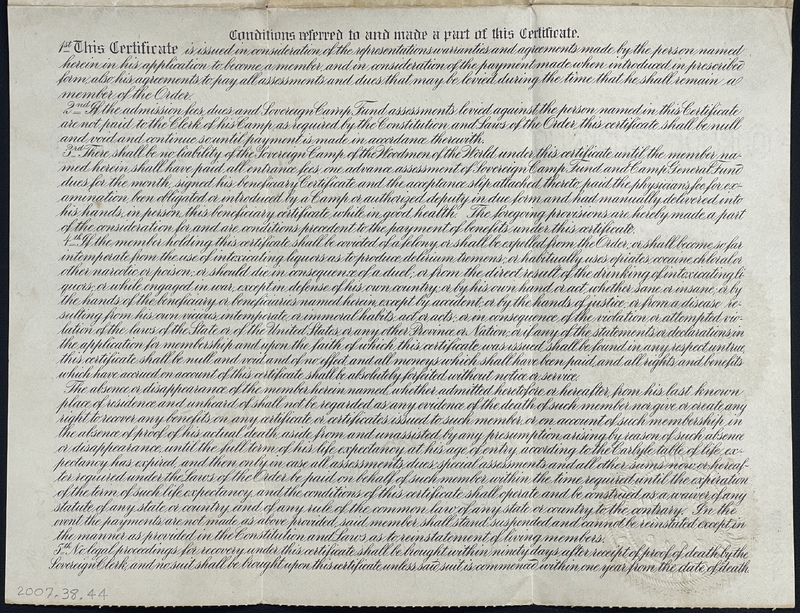 Conditions referred to and made a part of this Certificate.
1st This Certificate is issued in consideration of the representations warranties and agreements made by the person named
herein in his application to become a member and in consideration of the payment made when introduced in prescribed
form, also his agreements to pay all assessments and dues that may be levied during the time that he shall remain a
member of the Order.
2nd If the admission fees, dues and Sovereign Camp Fund assessments levied against the person named in this Certificate
are not paid to the Clerk of his Camp, as required by the Constitution and Laws of the Order, this certificate shall be null
and void and continue so until payment is made in accordance therewith.
3rd There shall be no liability of the Sovereign Camp of the Woodmen of the World under this certificate until the member na-
med herein shall have paid all entrance fees, one advance assessment of Sovereign Camp Fund and Camp General Fund
dues for the month, signed his beneficiary Certificate and the acceptance slip attached thereto, paid the physicians fee for ex-
amination, been obligated or introduced by a Camp or authorized deputy in due form and had manually delivered into
his hands, in person, this beneficiary certificate while in good health. The foregoing provisions are hereby made a part
of the consideration for and are conditions precedent to the payment of benefits under this certificate.
4th If the member holding this certificate shall be convicted of a felony, or shall be expelled from the Order, or shall become so far
intemperate from the use of intoxicating liquors as to produce delirium tremens; or habitually uses opiates, cocaine, chloral or
other narcotic or poison; or should die in consequence of a duel; or from the direct result of the drinking of intoxicating li-
quors; or while engaged in war, except in defense of his own country, or by his own hand or act, whether sane or insane, or by
the hands of the beneficiary or beneficiaries named herein, except by accident, or by the hands of justice, or from a disease re-
sulting from his own vicious, intemperate, or immoral habits, act or acts; or in consequence of the violation or attempted vio-
lation of the laws of the State or of the United States, or any other Province or Nation, or if any of the statements or declarations in
the application for membership and upon the faith of which this certificate was issued shall be found in any respect untrue,
this certificate shall be null and void and of no effect, and all moneys which shall have been paid, and all rights and benefits
which have accrued on account of this certificate shall be absolutely forfeited without notice or service.
The absence or disappearance of the member herein named, whether admitted heretofore or hereafter, from his last known
place of residence and unheard of shall not be regarded as any evidence of the death of such member nor give or create any
right to recover any benefits on any certificate or certificates issued to such member or on account of such membership, in
the absence of proof of his actual death, aside from and unassisted by any presumption arising by reason of such absence
or disappearance, until the full term of his life expectancy at his age of entry, according to the Carlyle table of life ex-
pectancy has expired, and then only in case all assessments, dues, special assessments and all other sums now or hereaf-
ter required under the Laws of the Order be paid on behalf of such member within the time required until the expiration
of the term of such life expectancy, and the conditions of this certificate shall operate and be construed as a waiver of any
statute of any state or country and of any rule of the common law of any state or country to the contrary. In the
event the payments are not made as above provided, said member shall stand suspended and cannot be reinstated except in
the manner as provided in the Constitution and Laws as to reinstatement of living members.
5th No legal proceedings for recovery under this certificate shall be brought within ninety days after receipt of proof of death by the
Sovereign Clerk, and no suit shall be brought upon this certificate unless said suit is commenced within one year from the date of death.
2007.38.44